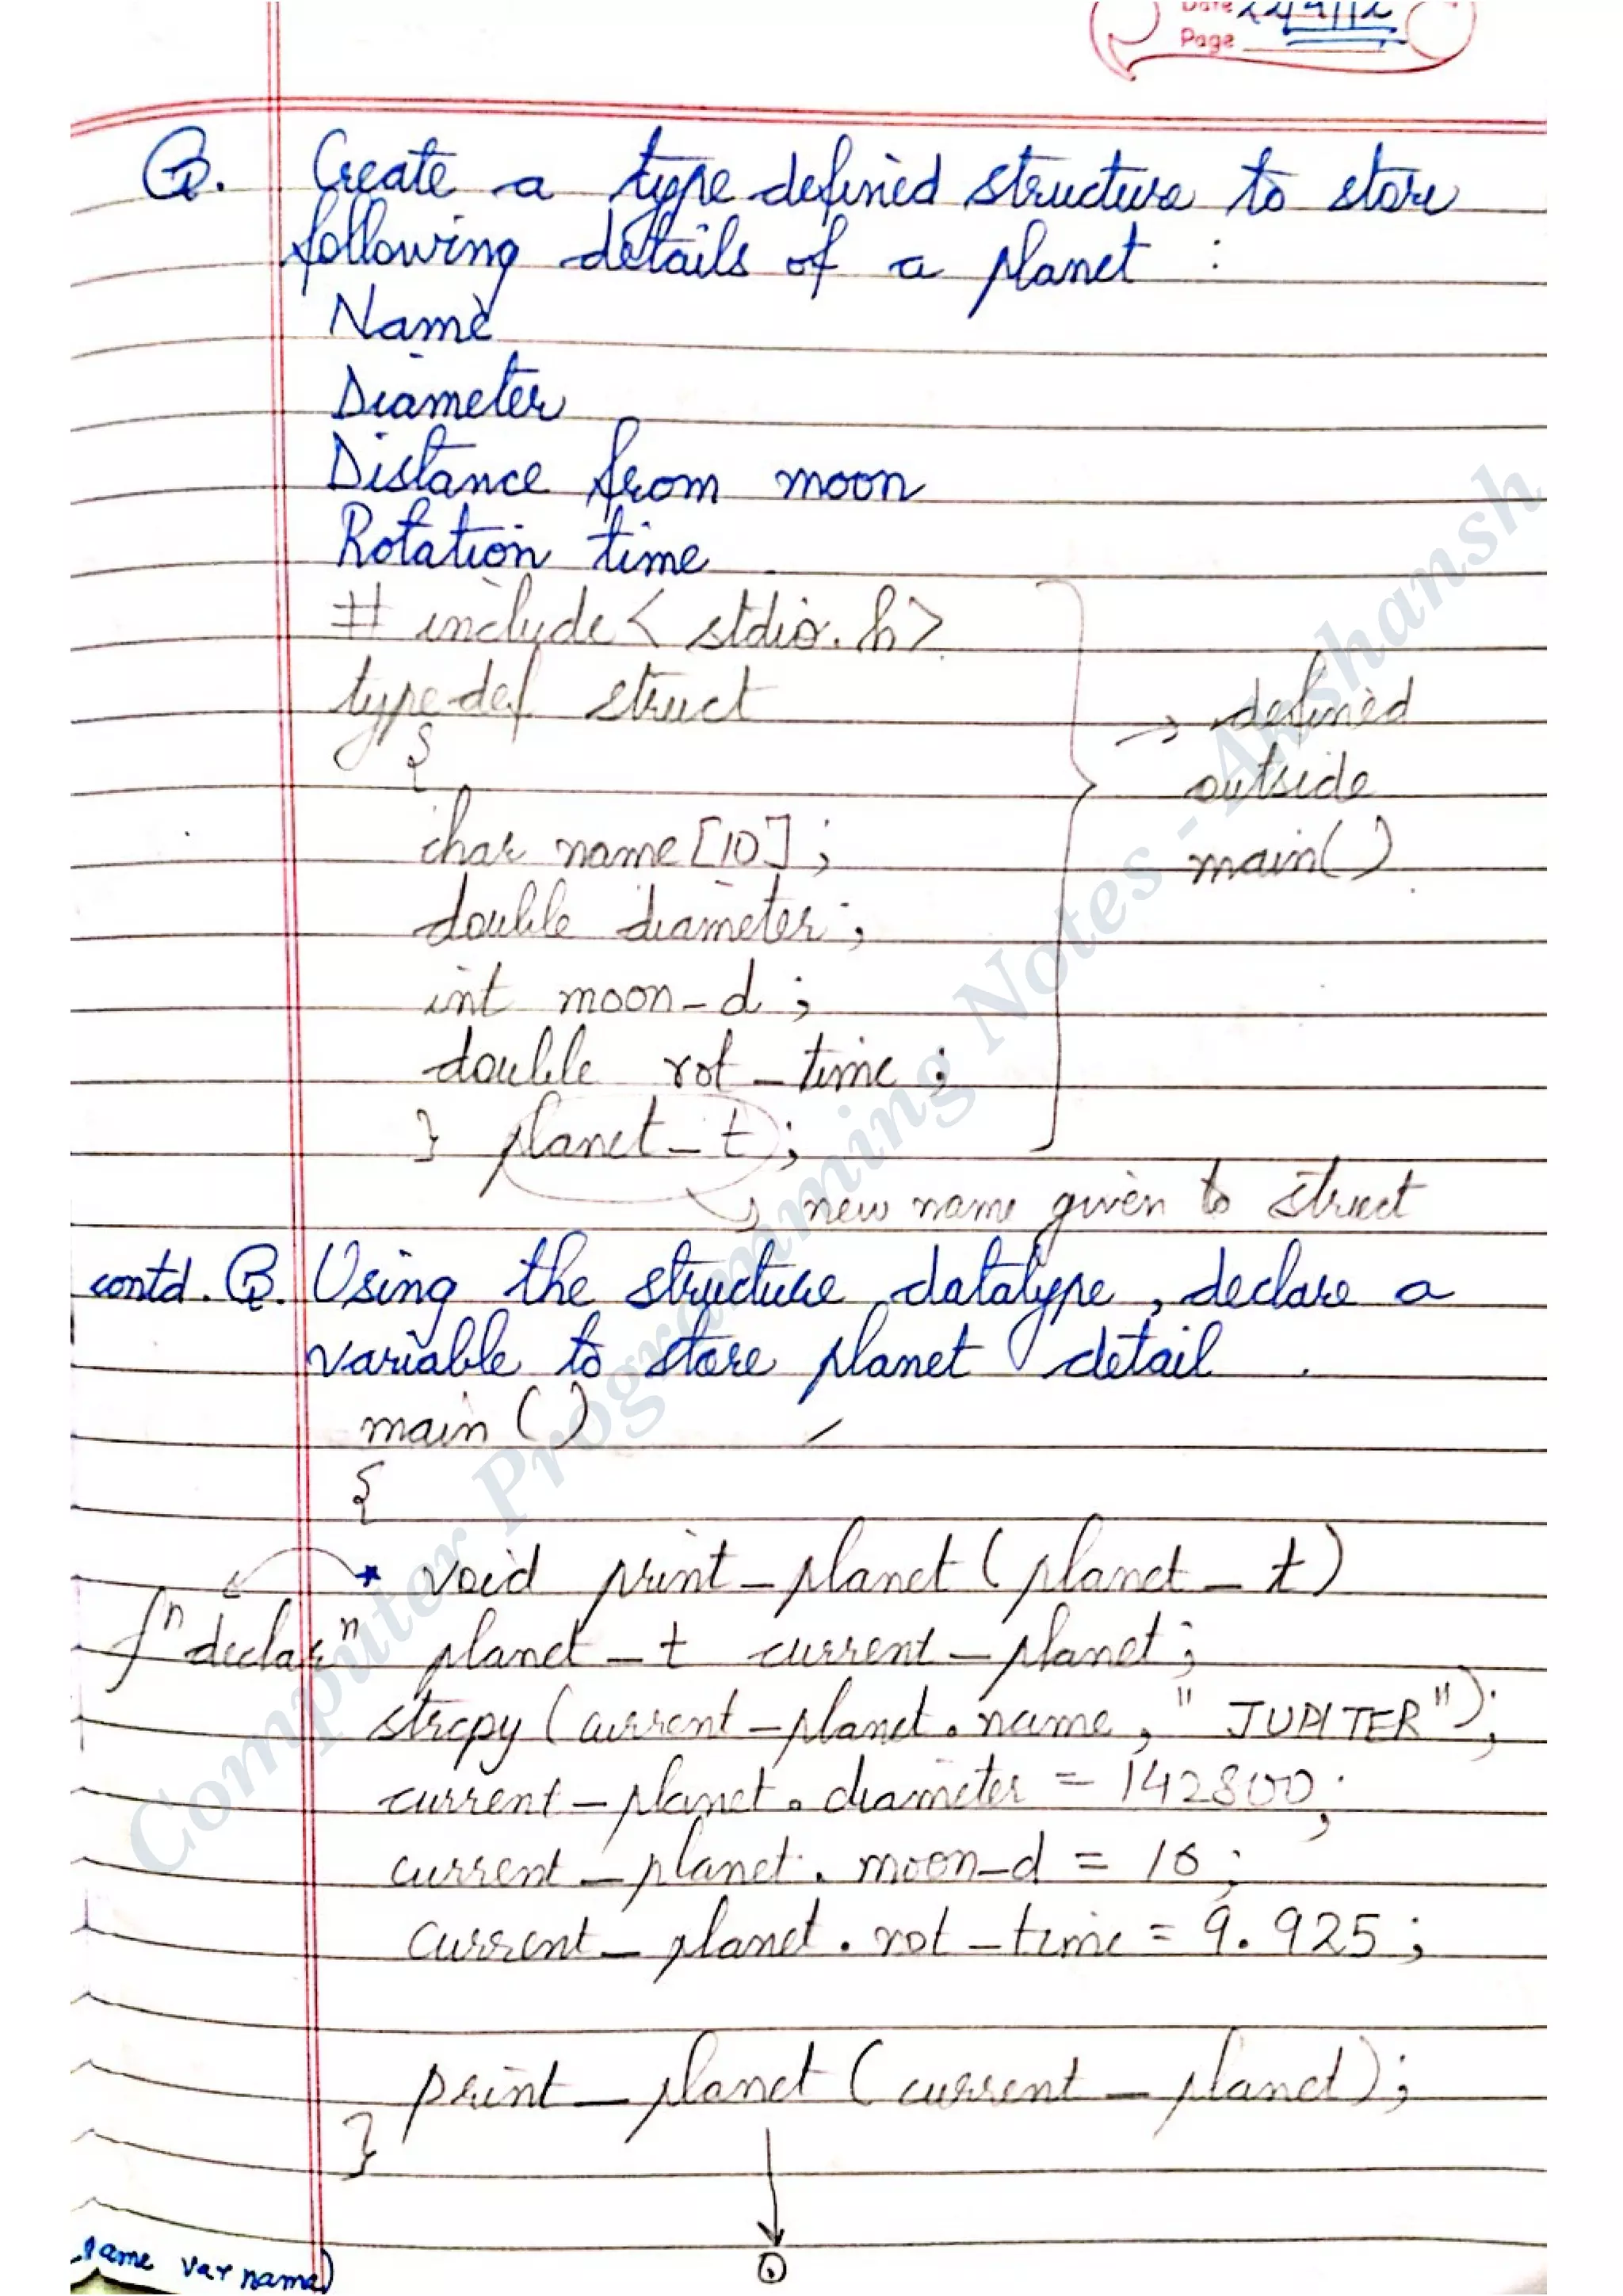 Date
Page
Q. Create a type defined structure to store
following details of a planet :
Name
Diameter
Distance from moon
Rotation time
# include < stdio.h >
typedef struct
{
char name [10] ;
double diameter ;
int moon_d ;
double rot_time ;
} planet_t ;
→ defined
outside
main()
→ new name given to struct
contd. Q. Using the structure datatype, declare a
variable to store planet detail .
main ()
{
* void print_planet ( planet_t )
fⁿ declarⁿ
planet_t current_planet ;
strcpy ( current_planet . name , " JUPITER " ) ;
current_planet . diameter = 142800 ;
current_planet . moon_d = 16 ;
current_planet . rot_time = 9.925 ;
print_planet ( current_planet ) ;
}
①
same var name)
Computer Programming Notes - Akshansh